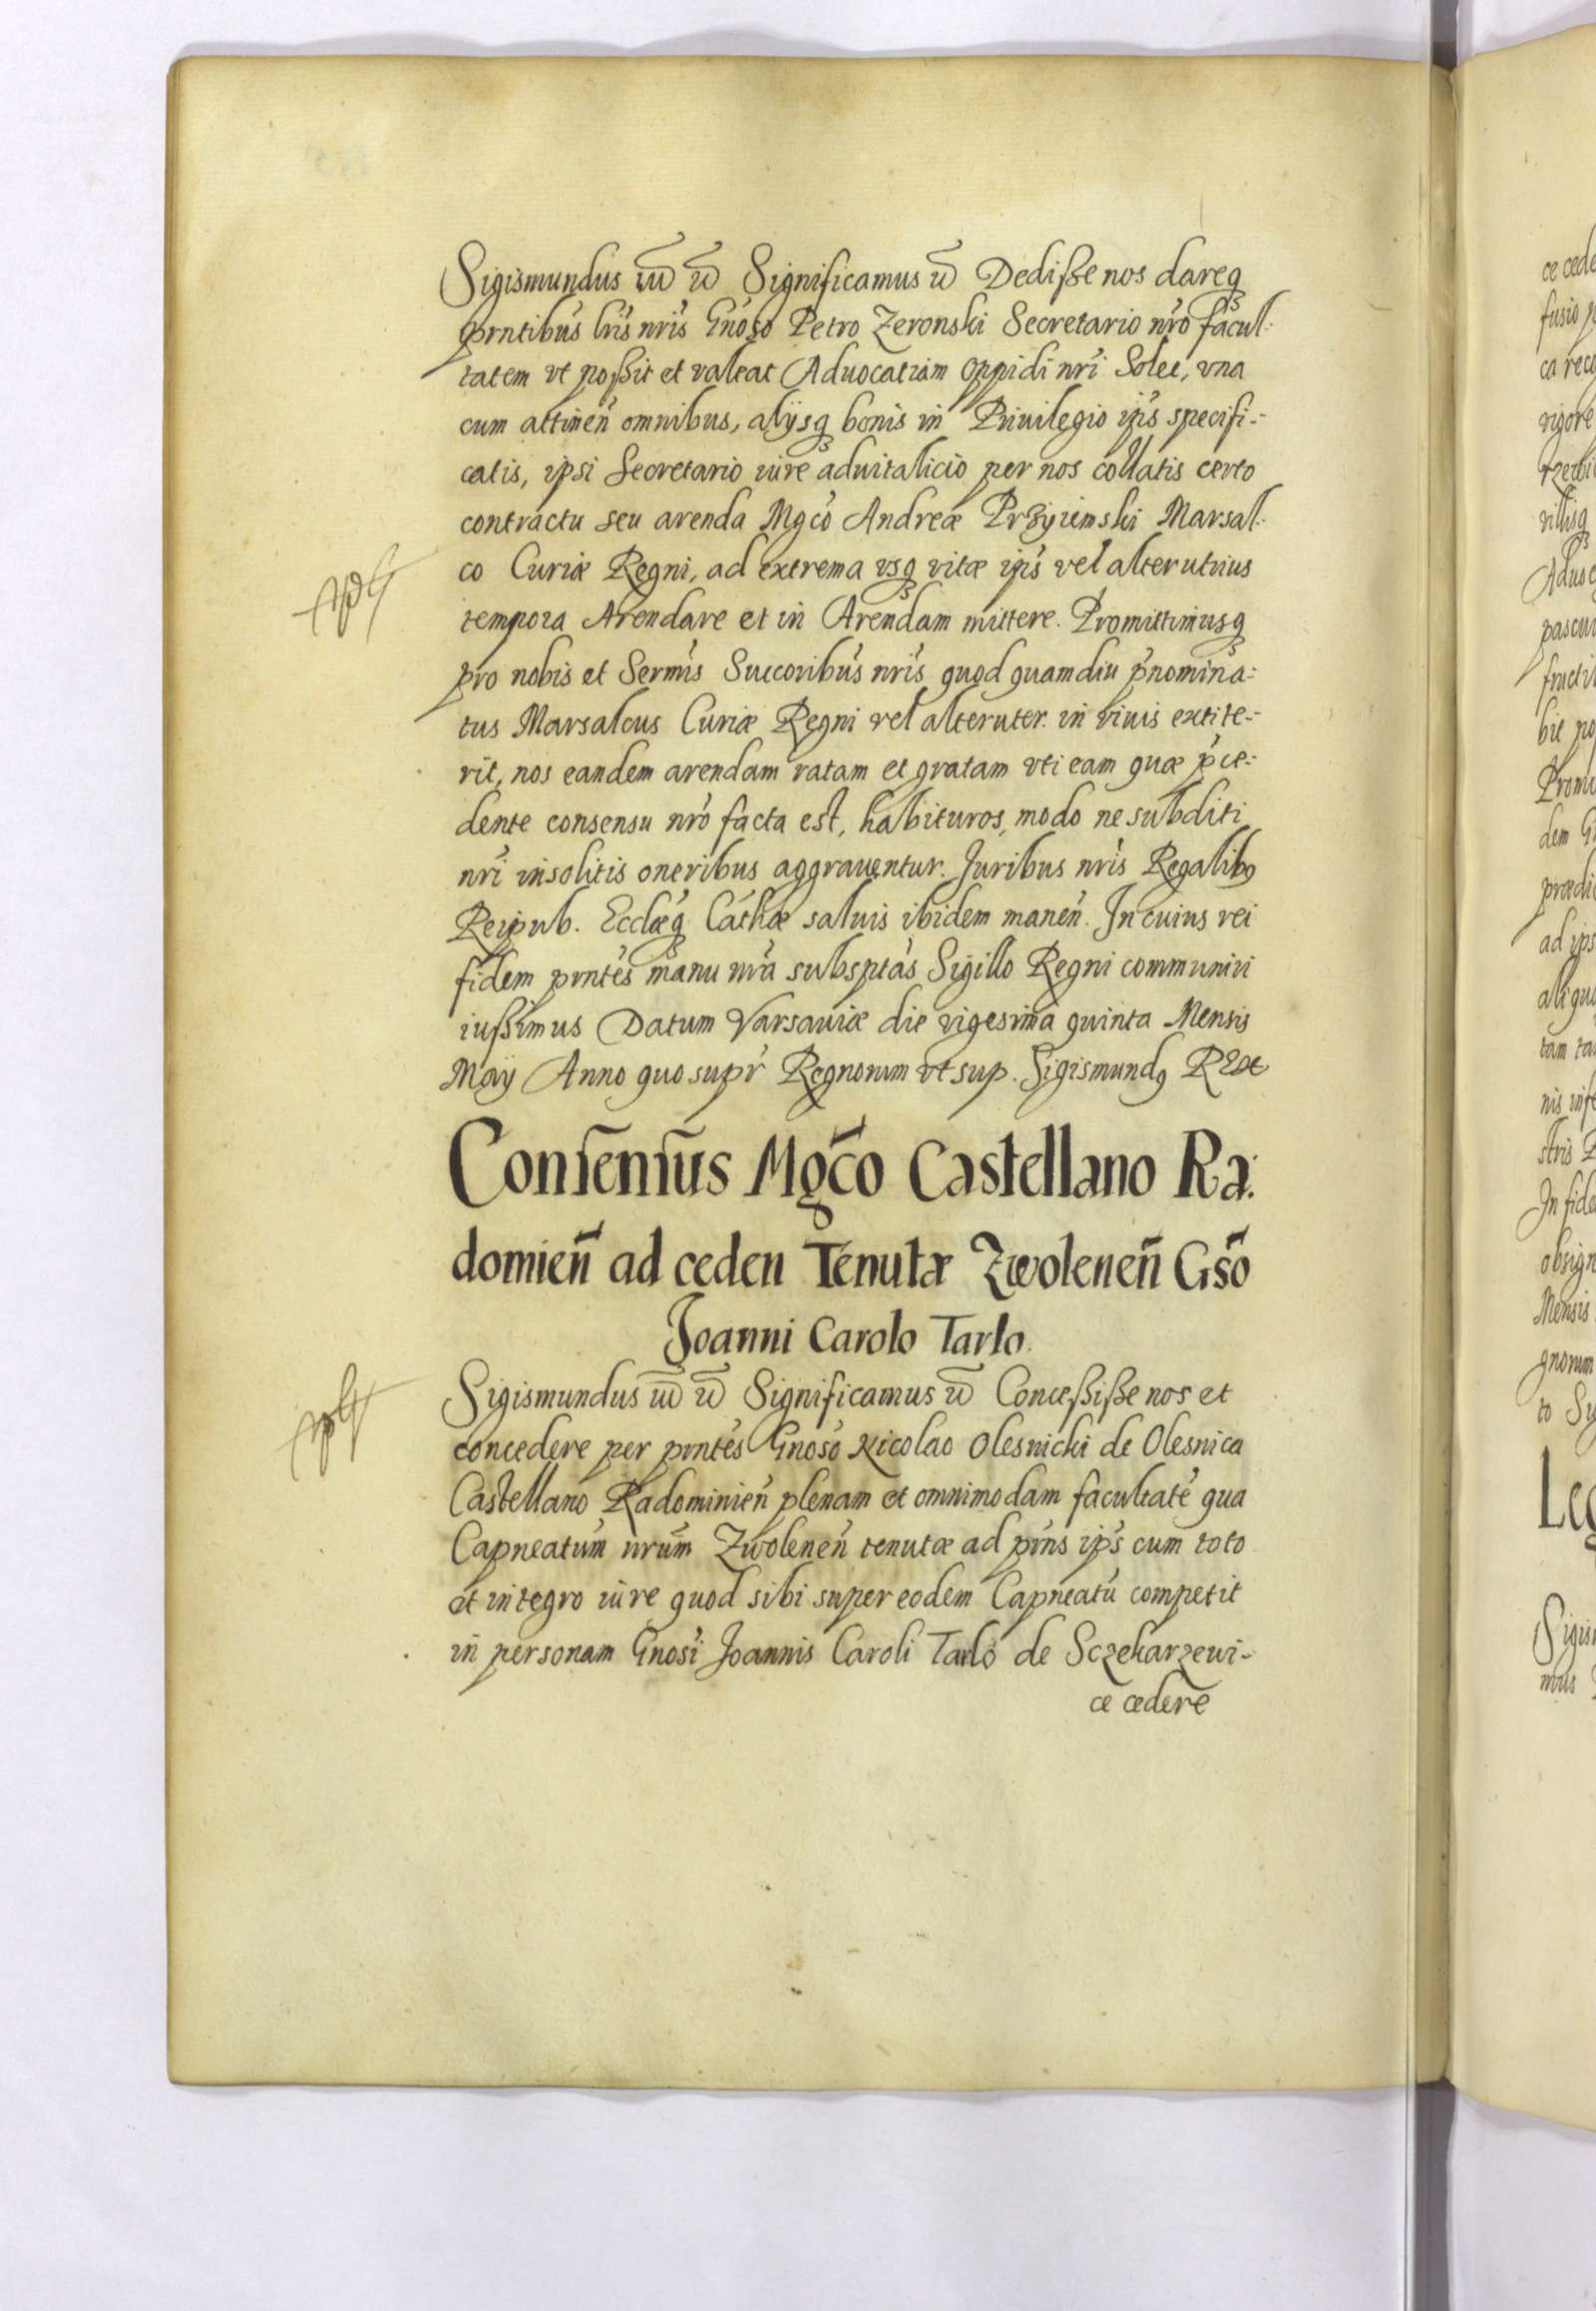 Sigismundus iii͠ ĩ Significamus ĩ Dediße nos dareq
prntibus lris nris Gnoso Petro Zeronski Secretario nro facul-
tatem vt poßit et valeat Aduocatiam Oppidi nri Solec, vna
cum attineñ omnibus, alijsq bonis in Priuilegio ipis specifi-
catis, ipsi Secretario iure aduitalicio per nos collatis certo
contractu seu arenda Mgco Andreæ Przyiemski Marsal-
co Curiæ Regni, ad extrema vsq vitæ ipis vel alterutrius
tempora Arendare et in Arendam mittere. Promittimusq
pro nobis et Sermis Succoribus nris quod quamdiu pnomina-
tus Marsalcus Curiæ Regni vel alteruter in viuis extite-
rit, nos eandem arendam ratam et gratam vti eam quæ pce-
dente consensu nro facta est, habituros, modo ne subditi
nri insolitis oneribus aggrauentur. Juribus nris Regalib9
Reipub. Ecclæq Cathæ saluis ibidem maneñ. In cuius rei
fidem pontes manu nra subsptas Sigillo Regni communiri
iußimus Datum Varsauiæ die vigesima quinta Mensis
Maÿ Anno quo supr Regnorum vt sup. Sigismund9 REx
Consensus Mgco Castellano Ra:
domieñ ad ceden Tenutæ Zwoleneñ Gso
Joanni Carolo Tarlo
Sigismundus iii͠ ĩ Significamus ĩ Conceßiße nos et
concedere per pntes Gnoso Nicolao Olesnicki de Olesnica
Castellano Radominieñ plenam et omnimodam facultatẽ qua
Capneatum nrum Zwoleneñ tenutæ ad pñs ips cum toto
et integro iure quod sibi super eodem Capneatu competit
in personam Gnosi Joannis Caroli Tarlo de Sczekarzewi-
ce cedere